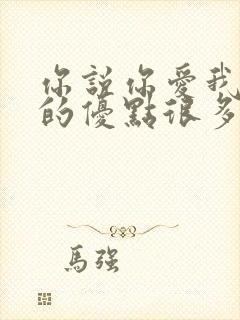 你說你愛我
的優點很多
馬強